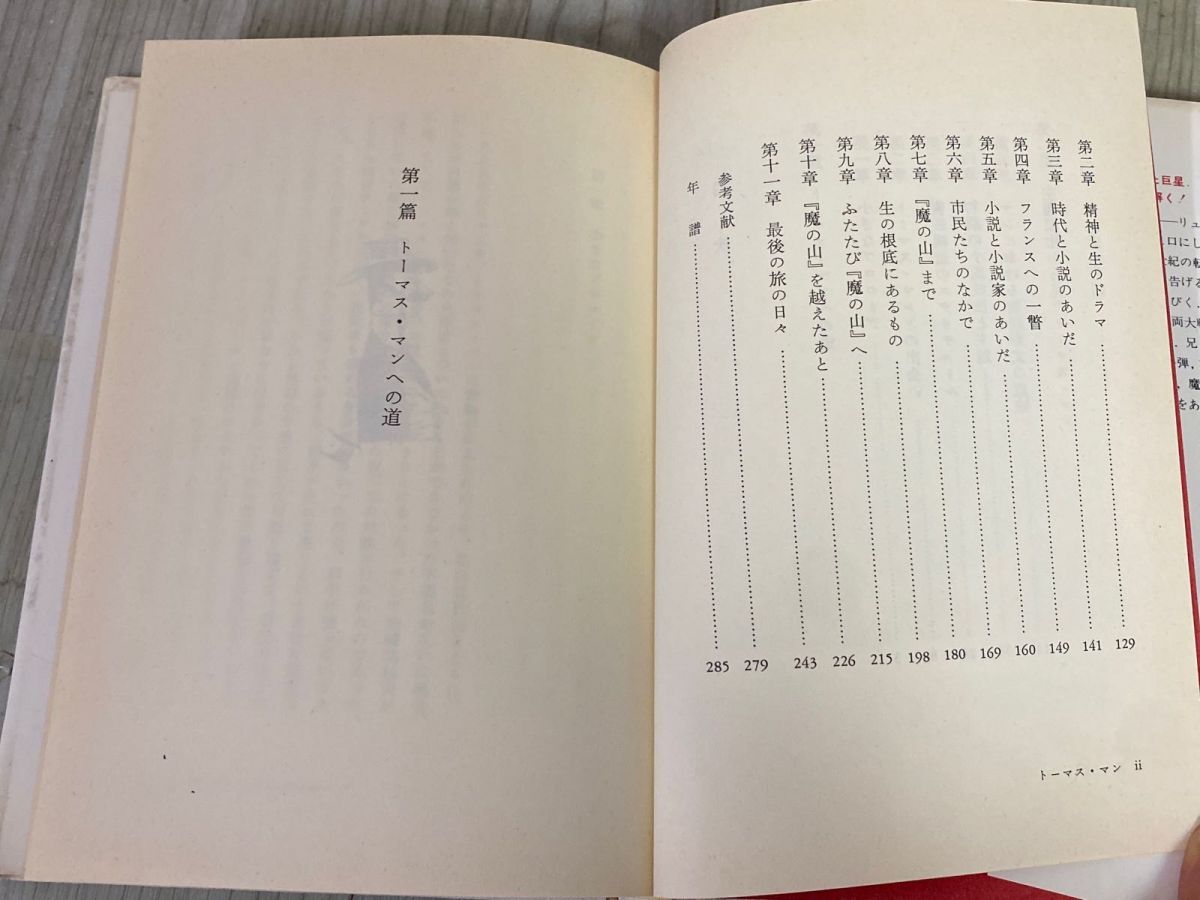 第二章 精神と生のドラマ……………………129
第三章 時代と小説のあいだ……………………141
第四章 フランスへの一瞥……………………149
第五章 小説と小説家のあいだ……………………160
第六章 市民たちのなかで……………………169
第七章 『魔の山』まで……………………180
第八章 生の根底にあるもの……………………198
第九章 ふたたび『魔の山』へ……………………215
第十章 『魔の山』を越えたあと……………………226
第十一章 最後の旅の日々……………………243
参考文献……………………279
年 譜……………………285
トーマス・マン ii
第一篇 トーマス・マンへの道
巨星
解く!
──リュ
口にし
紀の転
告げる
びく.
両大戦
兄
弾,
魔
をあ